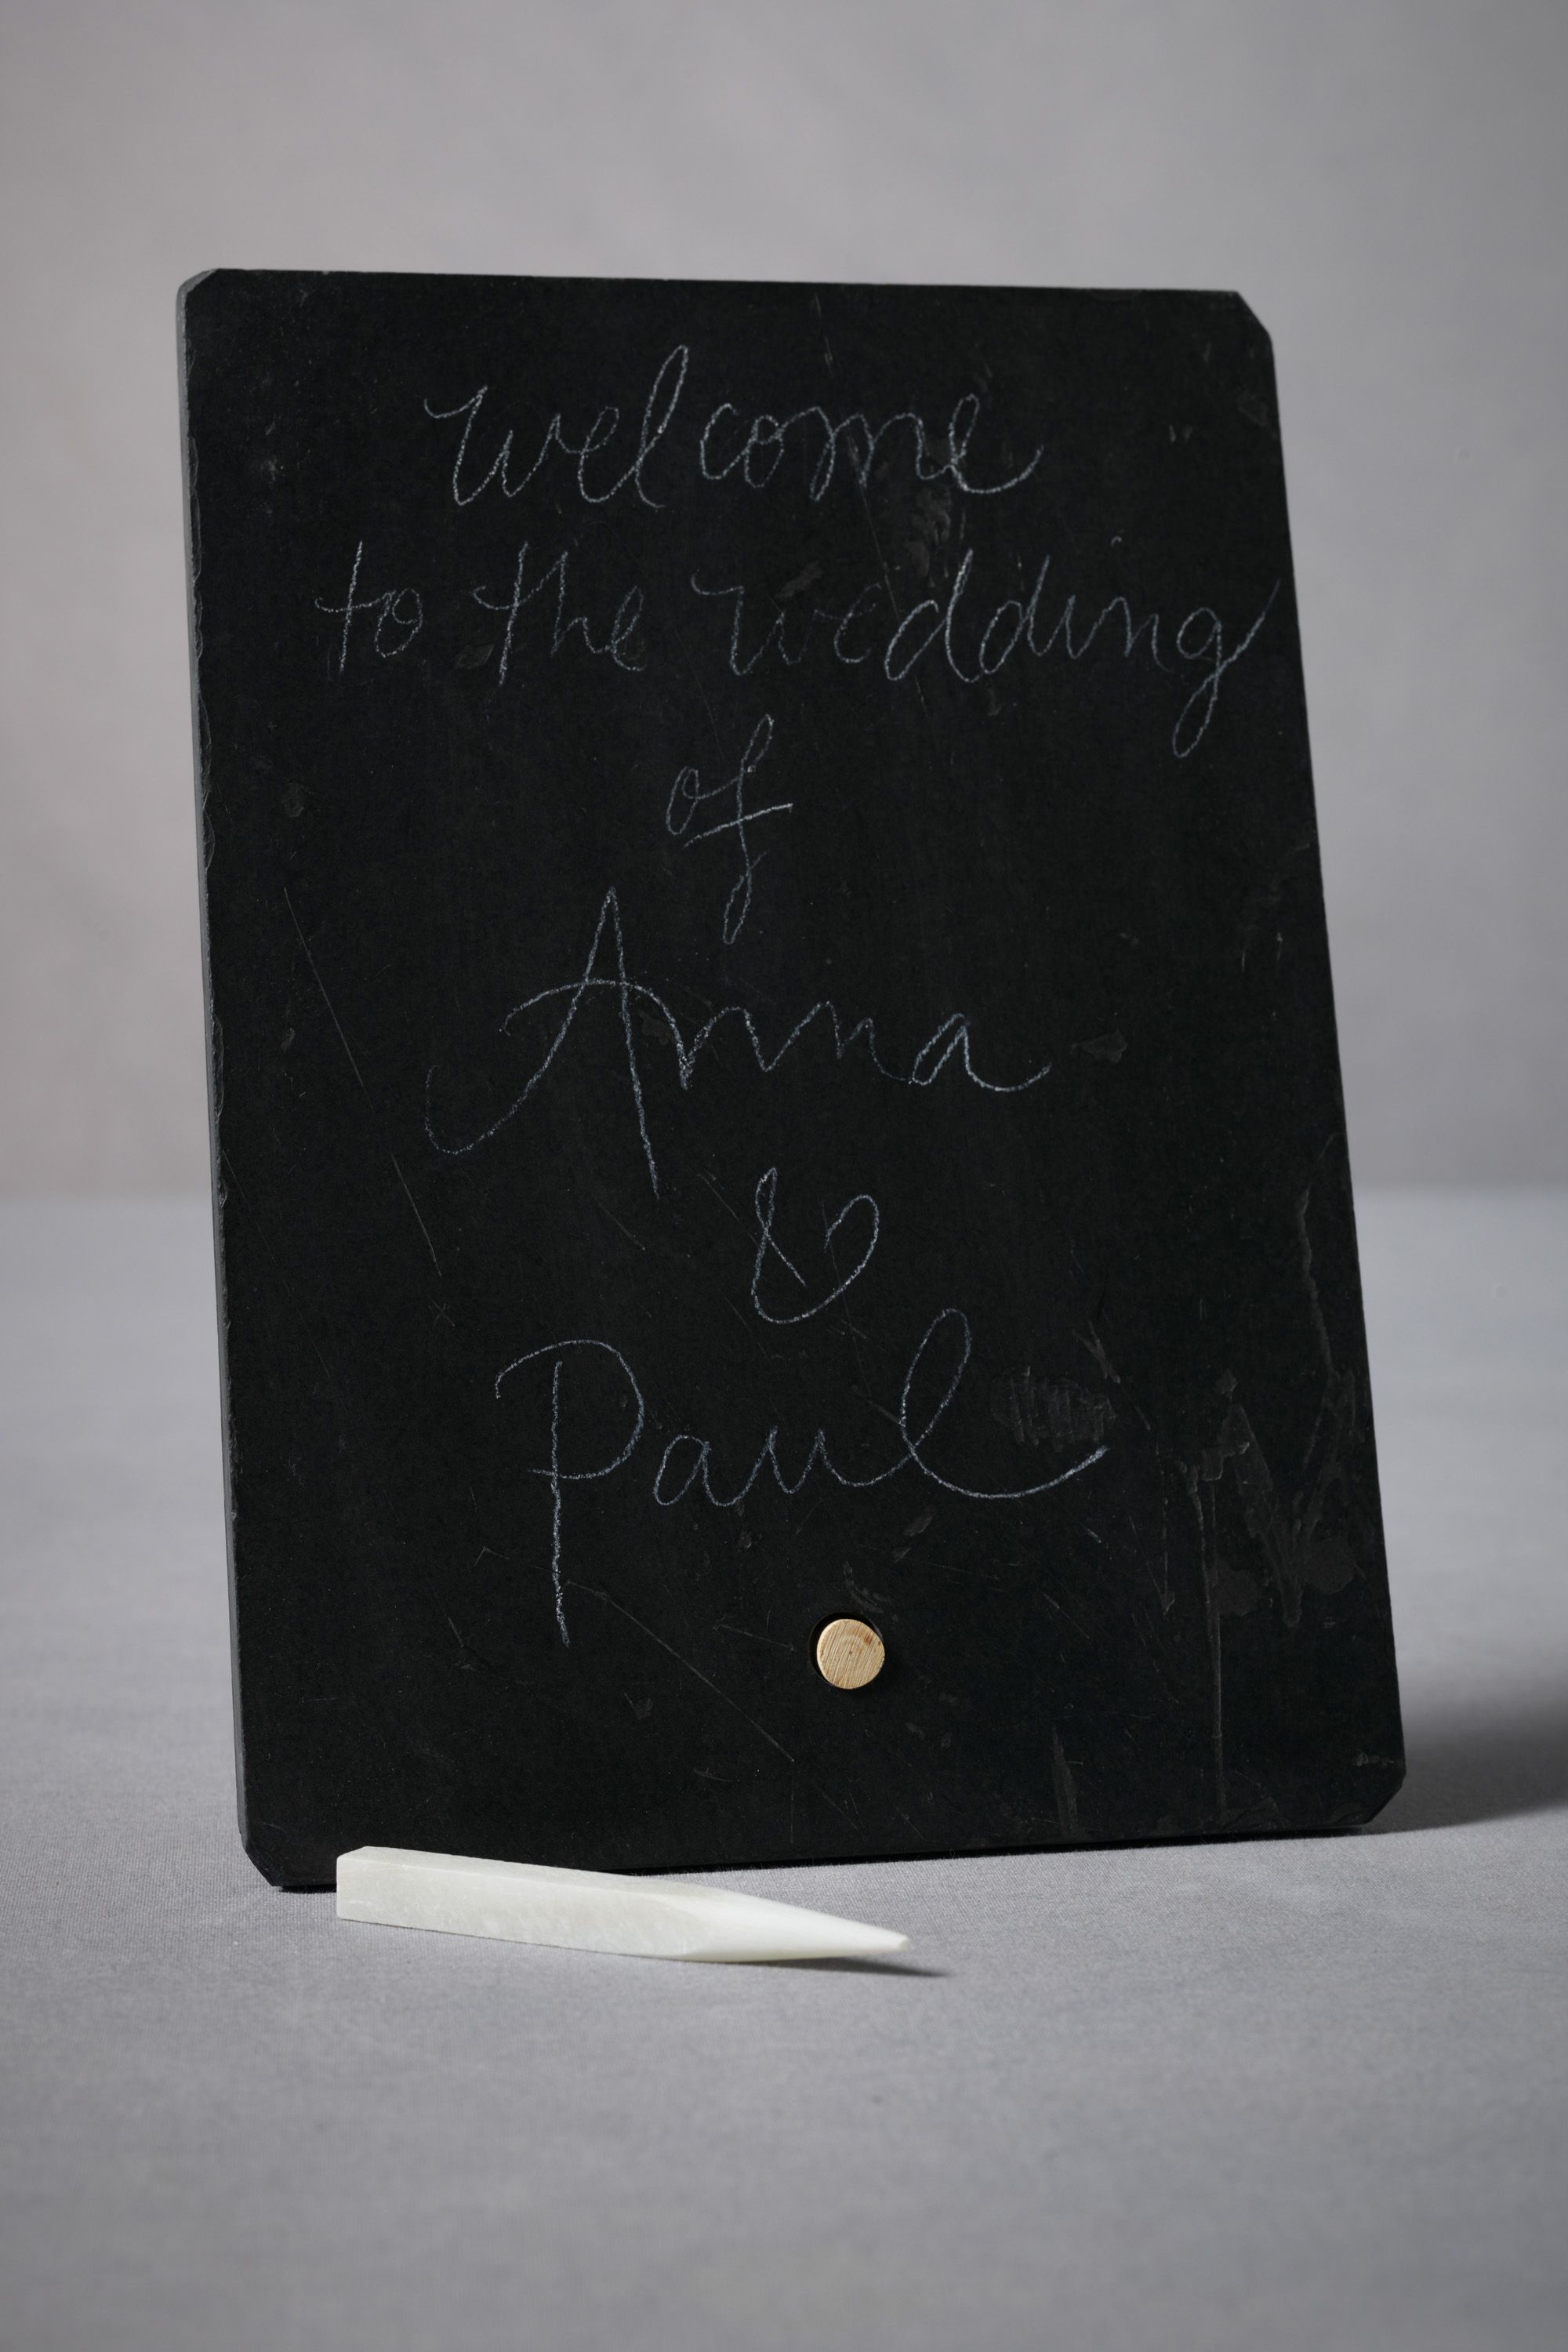 welcome
to the wedding
of
Anna
&
Paul